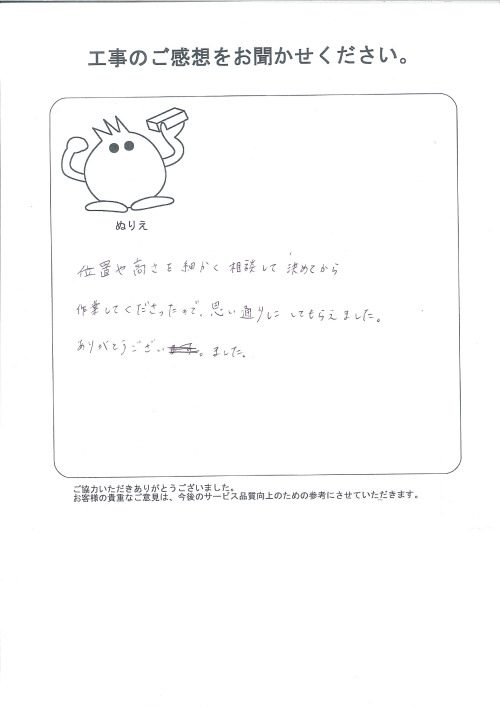 工事のご感想をお聞かせください。
ぬりえ
位置や高さを細かく相談して決めてから
作業してくださったので、思い通りに してもらえました。
ありがとうござい。ました。
ご協力いただきありがとうございました。
お客様の貴重なご意見は、今後のサービス品質向上のための参考にさせていただきます。